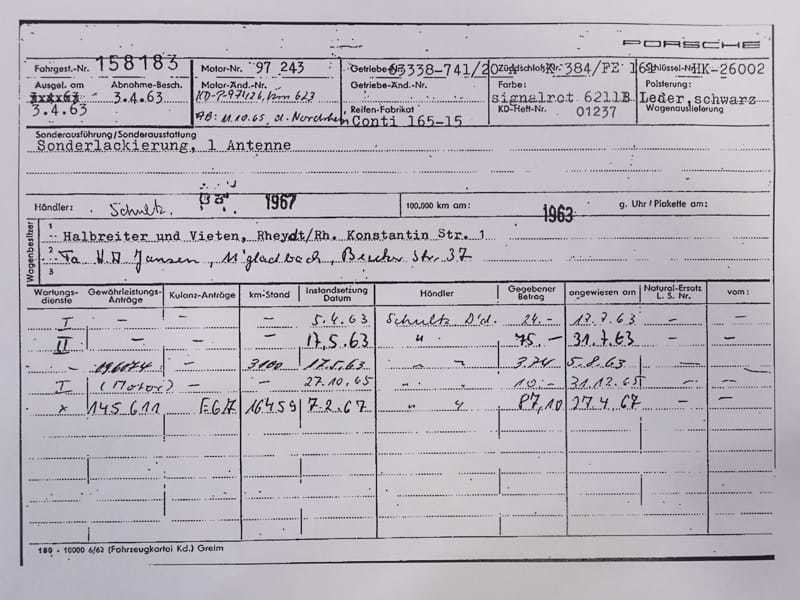 PORSCHE
Fahrgest.-Nr. 158183 Motor-Nr. 97 243 Getriebe 63338-741/20 Zündschloß-Nr. K 384/FE 169 Schlüssel-Nr. HK-26002
Ausgel. am Abnahme-Besch. Motor-Änd.-Nr. Getriebe-Änd.-Nr. Farbe: Polsterung:
3.4.63 3.4.63 KD-P-97126, 623 signalrot 6211B Leder, schwarz
AB: 11.10.65 d. Reifen-Fabrikat KD-Heft-Nr. 01237 Wagenauslieferung
Conti 165-15
Sonderausführung/Sonderausstattung
Sonderlackierung, 1 Antenne
Händler: Schultz. 1967 100.000 km am: 1963 g. Uhr/Plakette am:
Wagenbesitzer
1 Halbreiter und Vieten, Rheydt/Rh. Konstantin Str. 1
2 Fa Jansen, M'gladbach, Str. 37
3
Wartungsdienste Gewährleistungs-Anträge Kulanz-Anträge km-Stand Instandsetzung Datum Händler Gegebener Betrag angewiesen am Natural-Ersatz L. S. Nr. vom:
I - - - 5.4.63 Schultz D'd. 24.- 12.7.63 - -
II - - - 17.5.63 " 75.- 31.7.63 - -
- 3100 17.5.63 " " 3.74 5.8.63 -
I (Motor) - - 27.10.65 " " 10.- 31.12.65 - -
x 145611 F.67 16459 7.2.67 " " 87,10 27.4.67 - -
180 - 10000 6/62 (Fahrzeugkartei Kd.) Greim